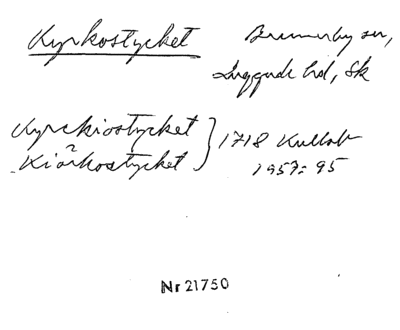 Kyrkostycket Brunnby sn,
Luggude hd, Sk
Kyrckiostycket } 1718 Kullab
Kiörkostycket } 1957:95
Nr 21750